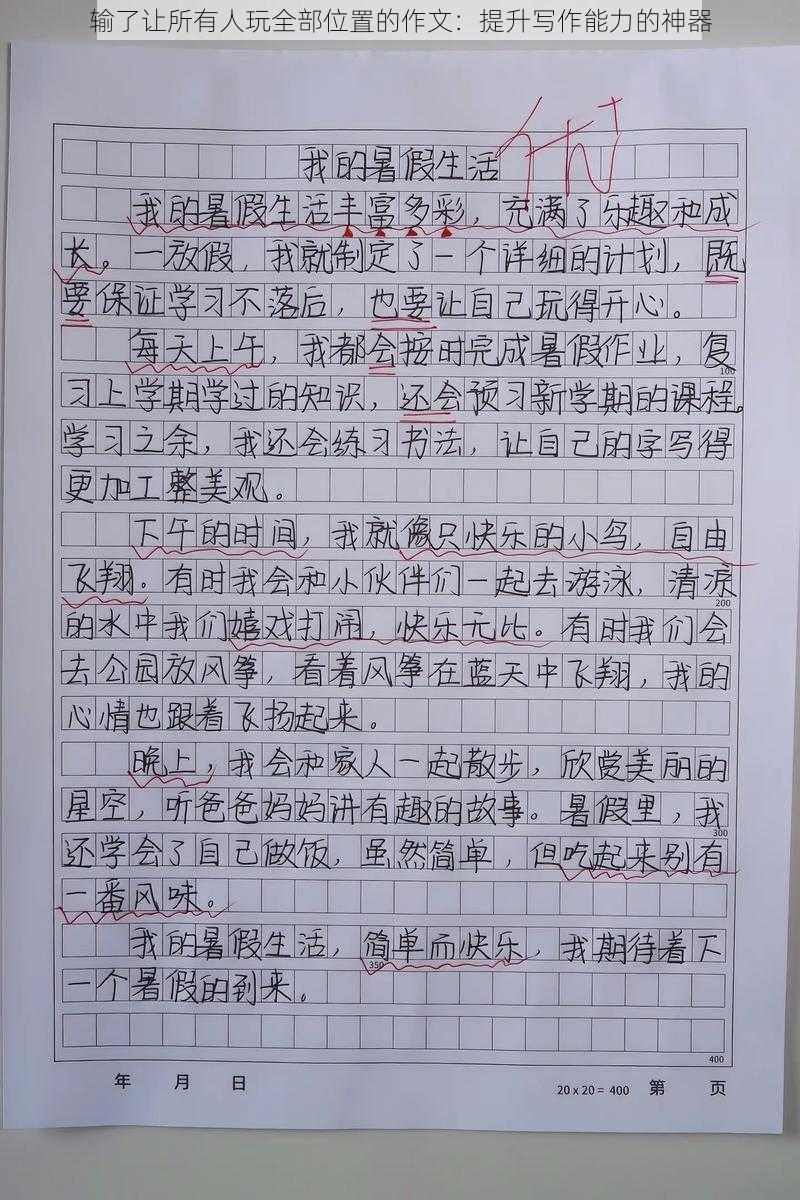 输了让所有人玩全部位置的作文：提升写作能力的神器
优+
我的暑假生活
我的暑假生活丰富多彩，充满了乐趣和成
长。一放假，我就制定了一个详细的计划，既
要保证学习不落后，也要让自己玩得开心。
每天上午，我都会按时完成暑假作业，复
100
习上学期学过的知识，还会预习新学期的课程。
学习之余，我还会练习书法，让自己的字写得
更加工整美观。
下午的时间，我就像只快乐的小鸟，自由
飞翔。有时我会和小伙伴们一起去游泳，清凉
200
的水中我们嬉戏打闹，快乐无比。有时我们会
去公园放风筝，看着风筝在蓝天中飞翔，我的
心情也跟着飞扬起来。
晚上，我会和家人一起散步，欣赏美丽的
星空，听爸爸妈妈讲有趣的故事。暑假里，我
300
还学会了自己做饭，虽然简单，但吃起来别有
一番风味。
我的暑假生活，简单而快乐，我期待着下
350
一个暑假的到来。
400
年 月 日 20 x 20 = 400 第 页